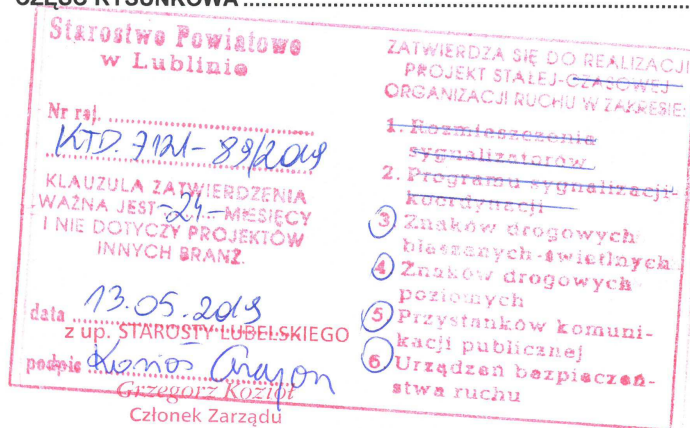 CZĘŚĆ RYSUNKOWA
Starostwo Powiatowe
w Lublinie
Nr rej.
KTD. 7121-89/2019
KLAUZULA ZATWIERDZENIA
WAŻNA JEST -24- MIESIĘCY
I NIE DOTYCZY PROJEKTÓW
INNYCH BRANŻ.
data 13.05.2019
z up. STAROSTY LUBELSKIEGO
podpis
Grzegorz Kozioł
Członek Zarządu
ZATWIERDZA SIĘ DO REALIZACJI
PROJEKT STAŁEJ-CZASOWEJ
ORGANIZACJI RUCHU W ZAKRESIE:
1. Rozmieszczenia
sygnalizatorów
2. Programu sygnalizacji-
koordynacji
3 Znaków drogowych
blaszanych-świetlnych
4 Znaków drogowych
poziomych
5 Przystanków komuni-
kacji publicznej
6 Urządzeń bezpieczeń-
stwa ruchu